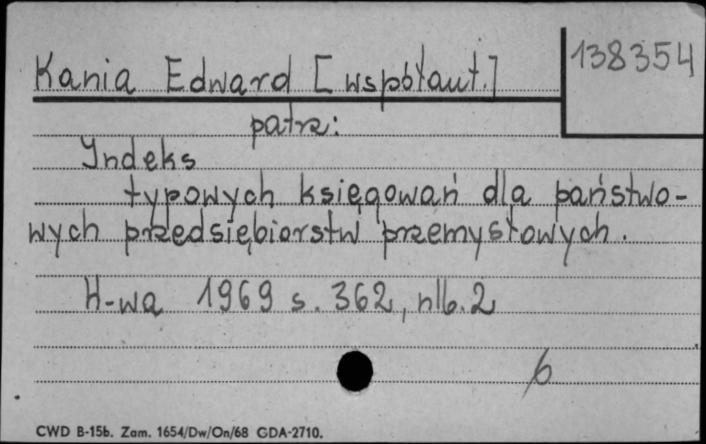 138354
Kania Edward [współaut.]
patrz:
Indeks
typowych księgowań dla państwo-
wych przedsiębiorstw przemysłowych.
W-wa 1969 s. 362, nlb. 2
6
CWD B-15b. Zam. 1654/Dw/On/68 GDA-2710.